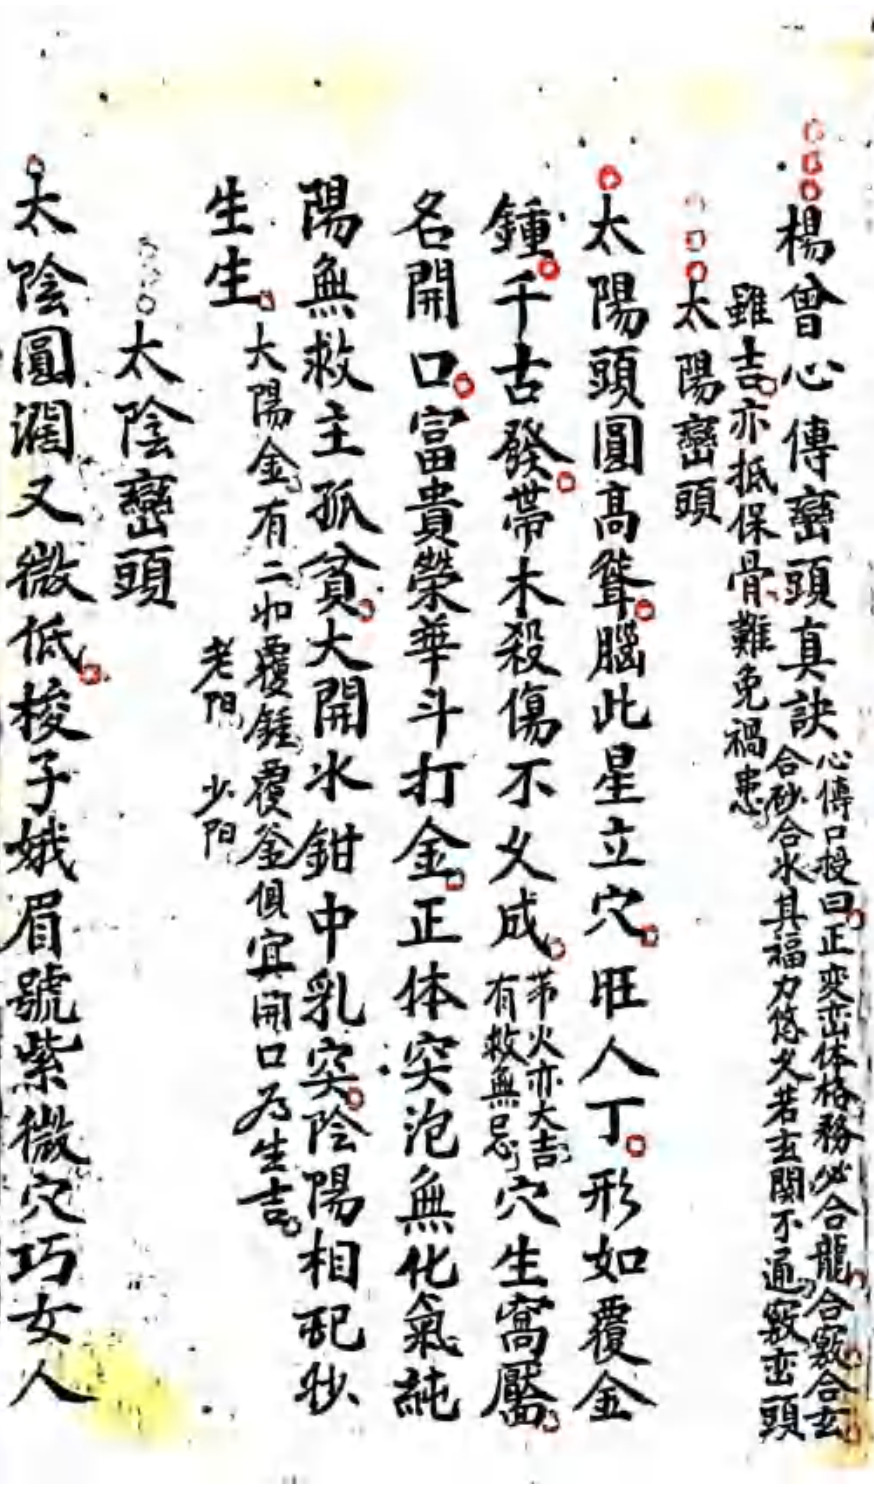 楊曾心傳巒頭真訣
心傳口授曰正変峦体格務必合龍合竅合玄
合砂合水其福力悠久若玄関不通竅峦頭
雖吉亦抵保骨難免禍患
太陽巒頭
太陽頭圓高聳腦此星立穴旺人丁形如覆金
鍾千古發帶木殺傷不久成
芾火亦大吉
有救無忌
穴生窩靨
名開口富貴榮華斗打金正体突泡無化氣純
陽無救主孤貧大開水鉗中乳突陰陽相配玅
生生
大陽金有二如覆鍾覆釜俱宜開口为生吉
老阳 少阳
太陰巒頭
太陰圓濶又微低梭子娥眉號紫微穴巧女人